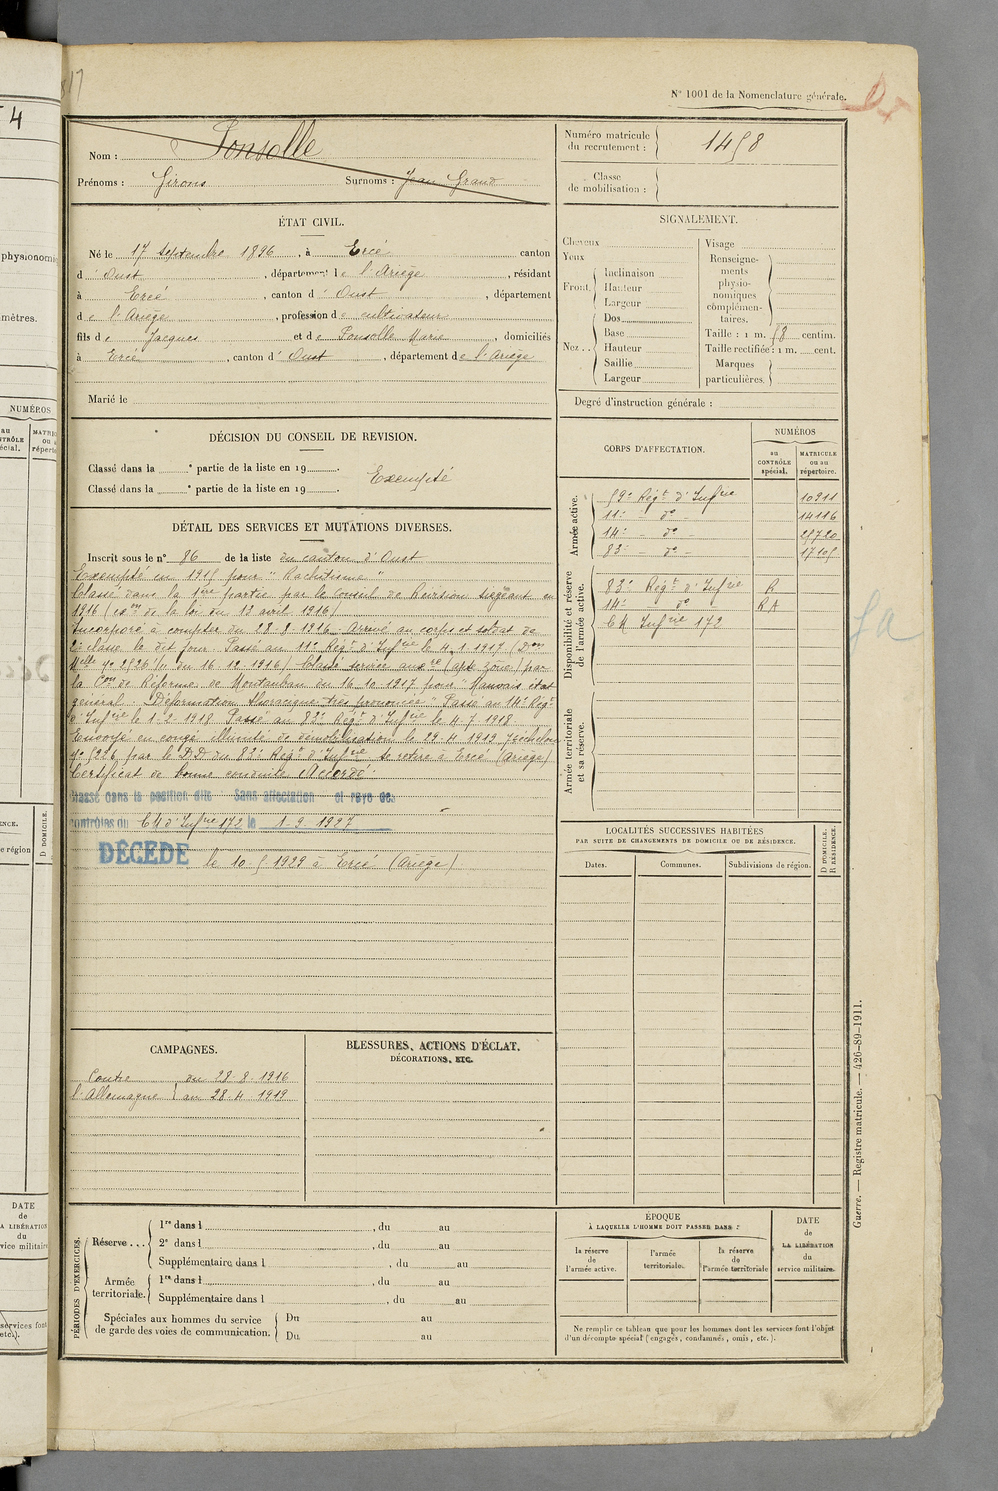 817
N° 1001 de la Nomenclature générale.
4
Nom : Ponsolle
Prénoms : Girons Surnoms : Jean Grand
Numéro matricule du recrutement : 1458
Classe de mobilisation :
ÉTAT CIVIL.
Né le 17 septembre 1896, à Ercé canton
d'Oust, département de l'Ariège, résidant
à Ercé, canton d'Oust, département
de l'Ariège, profession de cultivateur
fils de Jacques et de Ponsolle Marie, domiciliés
à Ercé, canton d'Oust, département de l'Ariège
Marié le
SIGNALEMENT.
Cheveux
Yeux
Front. Inclinaison
Hauteur
Largeur
Nez.. Dos
Base
Hauteur
Saillie
Largeur
Visage
Renseignements physionomiques complémentaires.
Taille : 1 m. 58 centim.
Taille rectifiée : 1 m. cent.
Marques particulières.
Degré d'instruction générale :
DÉCISION DU CONSEIL DE REVISION.
Classé dans la e partie de la liste en 19 .
Classé dans la e partie de la liste en 19 .
Exempté
DÉTAIL DES SERVICES ET MUTATIONS DIVERSES.
Inscrit sous le n° 86 de la liste du canton d'Oust
Exempté en 1915 pour "Rachitisme"
Classé dans la 1ère partie par le Conseil de Revision siégeant en
1916 (exon de la loi du 13 avril 1916)
Incorporé à compter du 28-8-1916. Arrivé au corps et soldat de
2e classe le dit jour. Passé au 11e Régt d'Infrie le 4.1.1917 (Don
Melle No 2526/ du 16.12.1916) Classé service auxre (apte zône) par
la Con de Réforme de Montauban du 16.10.1917 pour "Mauvais état
général. Déformation thoracique très prononcée" Passé au 14e Régt
d'Infrie le 1.2.1918. Passé au 83e Régt d'Infrie le 4.7.1918
Envoyé en congé illimité de démobilisation le 29.4.1919 7e échelon
No 5226 par le DD du 83e Régt d'Infrie se retire à Ercé (Ariège)
Certificat de bonne conduite "Accordé".
Classé dans la position dite Sans affectation et rayé des
contrôles du CM d'Infrie 172 le 1.9.1927
DÉCÉDÉ le 10.5.1929 à Ercé (Ariège)
CORPS D'AFFECTATION.
NUMÉROS
au CONTRÔLE spécial.
MATRICULE ou au répertoire.
Armée active.
59e Régt d'Infrie 10911
11e - do - 14116
14e - do - 25720
83e - do - 17105
Disponibilité et réserve de l'armée active.
83e Régt d'Infrie R
14e do RA
CM Infrie 172
Armée territoriale et sa réserve.
LOCALITÉS SUCCESSIVES HABITÉES
PAR SUITE DE CHANGEMENTS DE DOMICILE OU DE RÉSIDENCE.
Dates.
Communes.
Subdivisions de région.
D DOMICILE.
R RÉSIDENCE.
CAMPAGNES.
Contre l'Allemagne
du 28-8-1916
au 28-4-1919
BLESSURES, ACTIONS D'ÉCLAT.
DÉCORATIONS, ETC.
PÉRIODES D'EXERCICES.
Réserve... 1re dans l , du au
2e dans l , du au
Supplémentaire dans l , du au
Armée territoriale. 1re dans l , du au
Supplémentaire dans l , du au
Spéciales aux hommes du service de garde des voies de communication. Du au
Du au
ÉPOQUE
À LAQUELLE L'HOMME DOIT PASSER DANS :
la réserve de l'armée active.
l'armée territoriale.
la réserve de l'armée territoriale
DATE de LA LIBÉRATION du service militaire.
Ne remplir ce tableau que pour les hommes dont les services font l'objet
d'un décompte spécial (engagés, condamnés, omis, etc.).
Guerre. — Registre matricule. — 426-89-1911.